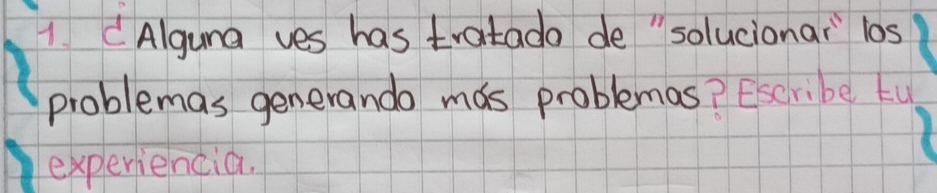 1. ¿Alguna ves has tratado de "solucionar" los
problemas generando más problemas? Escribe tu
experiencia.